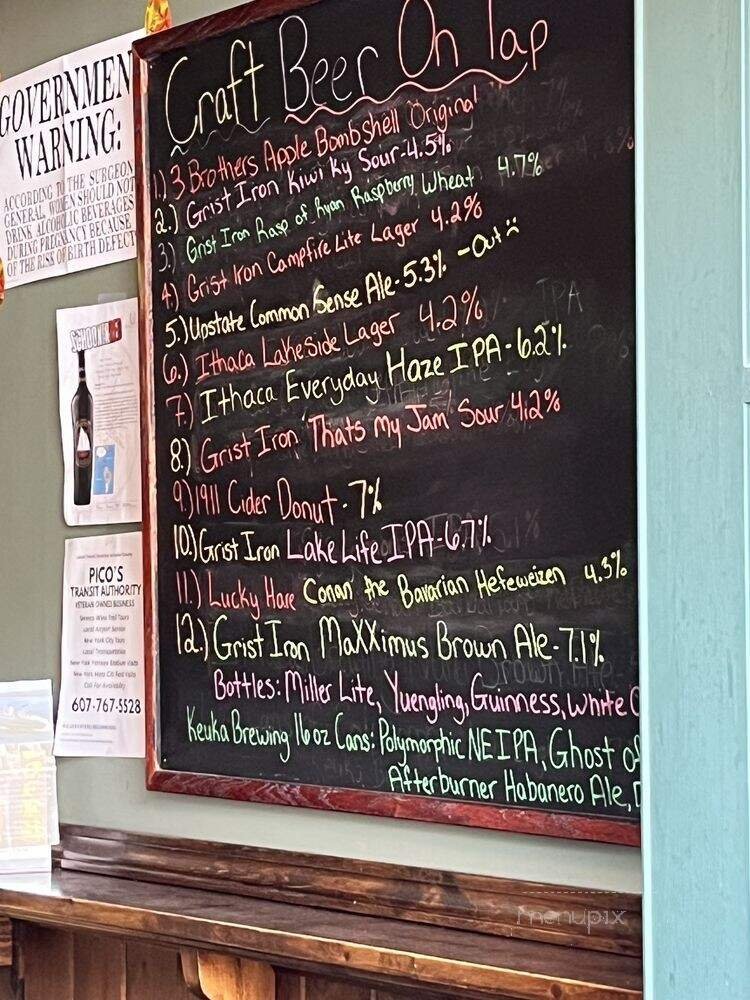 GOVERNMEN
WARNING:
ACCORDING TO THE SURGEON
GENERAL, WOMEN SHOULD NOT
DRINK ALCOHOLIC BEVERAGES
DURING PREGNANCY BECAUSE
OF THE RISK OF BIRTH DEFECT
Craft Beer On Tap
1.) 3 Brothers Apple Bombshell Original
2.) Grist Iron Kiwi Ky Sour-4.5%
3.) Grist Iron Rasp of Ryan Raspberry Wheat 4.7%
4.) Grist Iron Campfire Lite Lager 4.2%
5.) Upstate Common Sense Ale-5.3% -Out
6.) Ithaca Lakeside Lager 4.2%
7.) Ithaca Everyday Haze IPA-6.2%
8.) Grist Iron Thats my Jam Sour 4.2%
9.) 1911 Cider Donut-7%
10.) Grist Iron Lake Life IPA-6.7%
11.) Lucky Hare Conan the Bavarian Hefeweizen 4.3%
12.) Grist Iron MaXXimus Brown Ale-7.1%
Bottles: Miller Lite, Yuengling, Guinness, White C
Keuka Brewing 16oz Cans: Polymorphic NEIPA, Ghost of
Afterburner Habanero Ale,
PICO'S
TRANSIT AUTHORITY
VETERAN OWNED BUSINESS
Seneca Wine Trail Tours
Local Airport Service
New York City Tours
Local Transportation
New York Yankees Stadium Visits
New York Mets Citi Field Visits
Call For Availability
607-767-5528
menupix